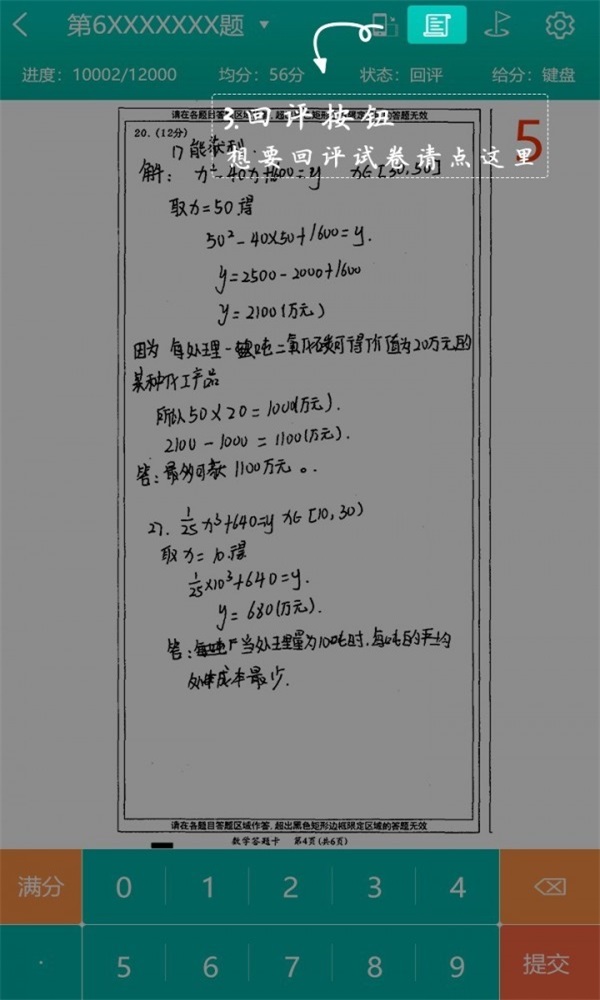 第6XXXXXXX题
进度：10002/12000 均分：56分 状态：回评 给分：键盘
请在各题目答题区域作答，超出黑色矩形边框限定区域的答题无效
3.回评按钮
5
20.(12分)
想要回评试卷请点这里
1) 能获利.
解： x²-40x+1600=y x∈[30,50]
取x=50得
50²-40×50+1600=y.
y=2500-2000+1600
y=2100(万元)
因为 每处理一吨二氧化碳可得价值为20万元的
某种化工产品
所以50×20=1000(万元).
2100-1000=1100(万元).
答：最多可获1100万元。
2). 1/25 x³+640=y x∈[10,30)
取x=10.得
1/25×10³+640=y.
y=680(万元).
答：当处理量为10吨时，每吨的平均
处理成本最少.
请在各题目答题区域作答，超出黑色矩形边框限定区域的答题无效
数学答题卡 第4页(共6页)
满分 0 1 2 3 4
· 5 6 7 8 9 提交